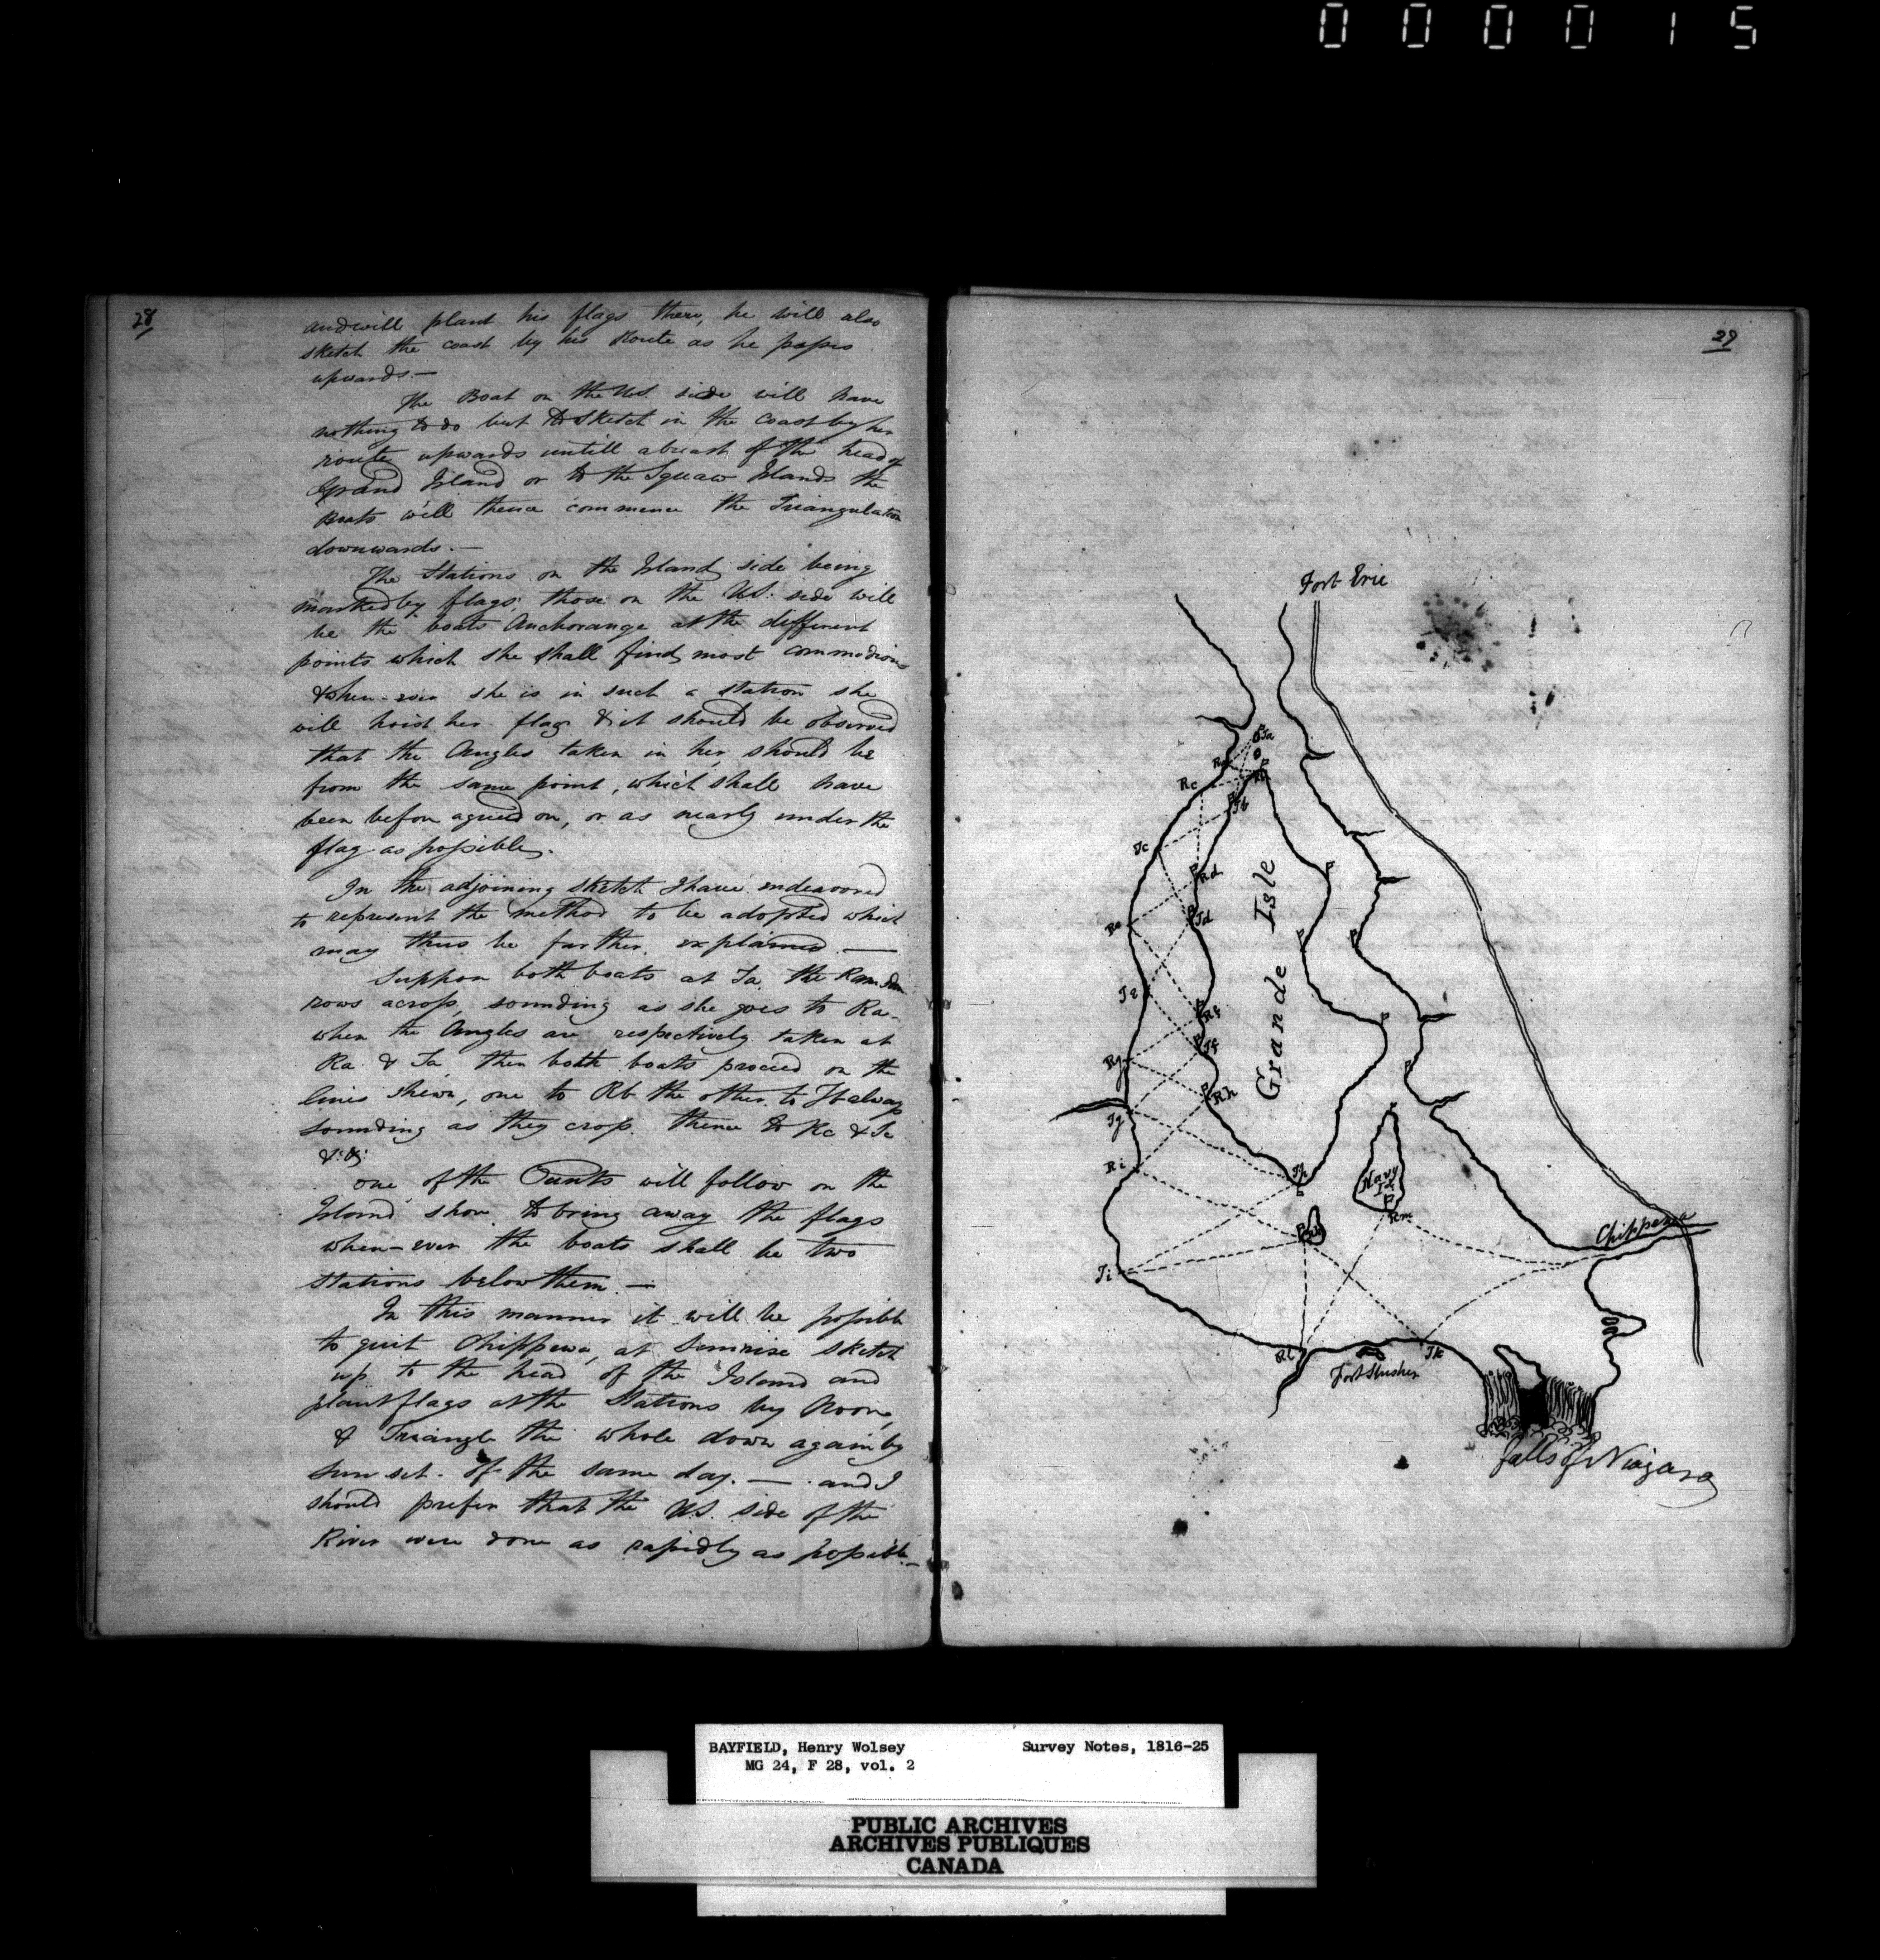 000015
28
and will plant his flags there, he will also
sketch the coast by his Route as he passes
upwards.—
The Boat on the U.S. side will have
nothing to do but to sketch in the Coast by her
route upwards untill abreast of the head of
Grand Island or to the Squaw Islands the
Boats will thence commence the Triangulation
downwards.—
The Stations on the Island side being
marked by flags, those on the U.S. side will
be the boats Anchorange at the different
points which she shall find most commodious
& when-ever she is in such a station she
will hoist her flag & it should be observed
that the Angles taken in her, should be
from the same point, which shall have
been before agreed on, or as nearly under the
flag as possible.
In the adjoining sketch I have endeavored
to represent the method to be adopted which
may thus be farther explained.—
Suppose both boats at Ta, the
rows across, sounding as she goes to Ra-
when the Angles are respectively taken at
Ra & Ta, then both boats proceed on the
lines shewn, one to Rb the other to Tb always
sounding as they cross. thence to Rc & Tc
&c: &c:
one of the Punts will follow on the
Island shore to bring away the flags
when-ever the boats shall be two
stations below them.—
In this manner it will be possible
to quit Chippewa, at Sunrise sketch
up to the head of the Island and
plant flags at the Stations by Noon,
& Triangle the whole down again by
sun set. of the same day.— and I
should prefer that the U.S. side of the
River were done as rapidly as possible.—
29
Fort Erie
Ta
Ra
Rb
Rc
Tb
Tc
Rd
Re
Td
Te
Rf
Rg
Tf
Rh
Tg
Ri
Th
Grande Isle
Navy
Id
Rm
Rk
Chippewa
Ti
Rl
Tk
Fort Slusher
falls of Niagara
BAYFIELD, Henry Wolsey Survey Notes, 1816-25
MG 24, F 28, vol. 2
PUBLIC ARCHIVES
ARCHIVES PUBLIQUES
CANADA